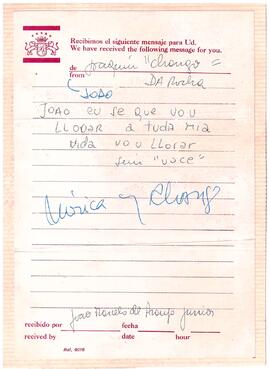 Recibimos el siguiente mensaje para Ud.
We have received the following message for you.
de Joaquin "Chongo" =
from DA Rocha
(JOAO
JOAO EU SE QUE VOU
LLORAR A TUDA MIA
VIDA VOU LLORAR
SEM "VOCE"
Mónica y Chongo
Joao Marcelo de Araujo Junior
recibido por fecha hora
recived by date hour
Ref. 9019